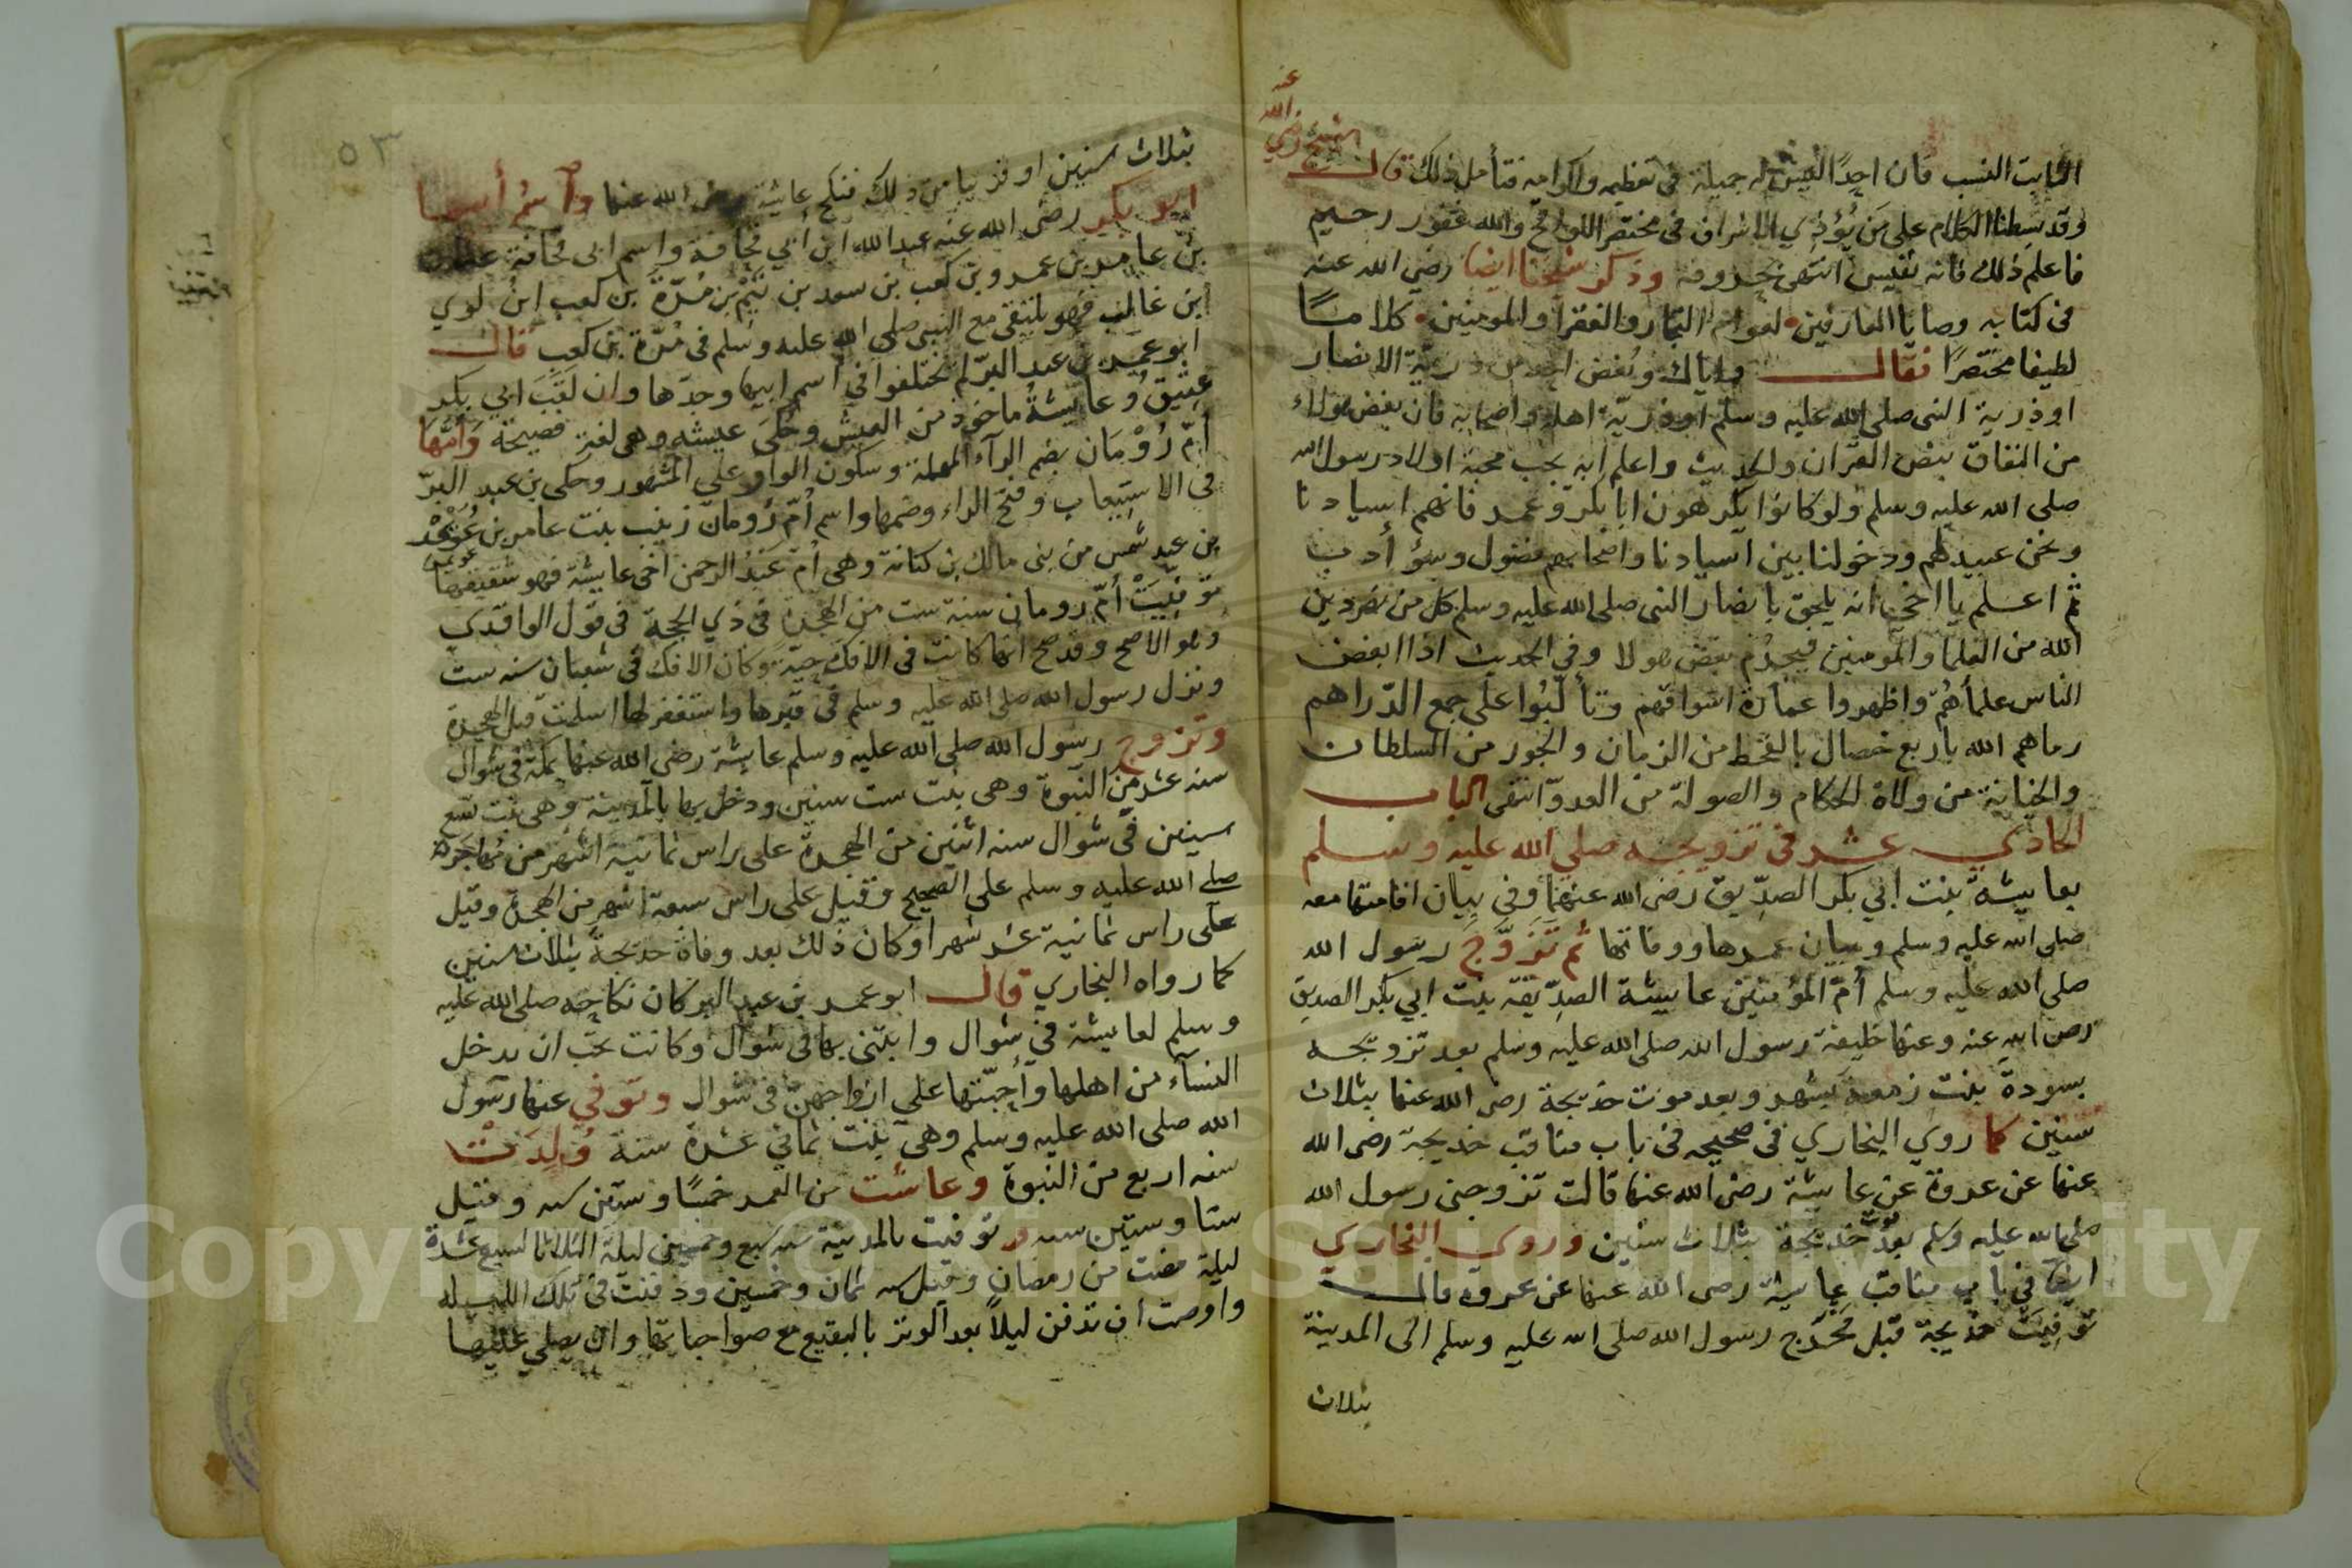 الثابت النسب فان احدًا ليس له جميلة في تعظيمه واكرامه فتأمل ذلك قال الشيخ رضي الله عنه
وقد بسطنا الكلام على من يُؤذي الاشراف في مختصر اللواقح والله غفور رحيم
فاعلم ذلك فانه نفيس انتهى بحروفه وذكر شيخنا ايضا رضي الله عنه
في كتابه وصايا العارفين لعوام التجار والفقرا والمومنين كلامًا
لطيفا مختصرًا فقال واياك وبُغض احد من ذريّة الانصار
او ذرية النبي صلى الله عليه وسلم او ذريّة اهله واصحابه فان بغض هولاء
من النفاق بنص القرآن والحديث واعلم انه يجب محبة اولاد رسول الله
صلى الله عليه وسلم ولو كانوا يكرهون ابا بكر وعمر فانهم اسيادنا
ونحن عبيدهم ودخولنا بين اسيادنا واصحابهم فضول وسؤ أدب
ثم اعلم يا اخي انه يلحق بانصار النبي صلى الله عليه وسلم كل من نصر دين
الله من العلما والمومنين فيحرُم بغض هولا وفي الحديث اذا ابغض
الناس علمأهُم واظهروا عمارة اسواقهم وتألّبُوا على جمع الدّراهم
رماهم الله باربع خصال بالقحط من الزمان والجور من السلطان
والخيانة من ولاة الحكام والصولة من العدوّ انتهى الباب
الحادي عشر في تزويجه صلى الله عليه وسلم
بعايشة بنت ابي بكر الصدّيق رضي الله عنهما وفي بيان اقامتها معه
صلى الله عليه وسلم وبيان عمرها ووفاتها ثم تَزَوَّجَ رسول الله
صلى الله عليه وسلم أمّ المؤمنين عاييشة الصدّيقة بنت ابي بكر الصديق
رضي الله عنه وعنها خليفة رسول الله صلى الله عليه وسلم بعد تزويجه
بسودة بنت زمعة بشهر وبعد موت خديجة رضي الله عنها بثلاث
سنين كما روي البخاري في صحيحه في باب مناقب خديجة رضي الله
عنها عن عروة عن عايشة رضي الله عنها قالت تزوجني رسول الله
صلى الله عليه وسلم بعد موت خديجة بثلاث سنين وروي البخاري
ايضًا في باب مناقب عايشة رضي الله عنها عن عروة قال
توفيت خديجة قبل مَخرَج رسول الله صلى الله عليه وسلم الى المدينة
بثلاث
٥٣
بثلاث سنين او قريبا من ذلك فنكح عايشة رضي الله عنها واسْمُ
ابو بكر رضي الله عنه عبد الله ابن أبي قحافة واسم ابي قُحَافة عثمان
بن عامر بن عمرو بن كعب بن سعد بن تَيْم بن مُرّةَ بن كعب ابن لوي
ابن غالب فهو يلتقي مع النبي صلى الله عليه وسلم في مُرّة بن كعب قال
ابو عمر بن عبد البرّ لم يختلفوا في اسم ابيها وجدّها وان لَقَبَ ابي بكر
عِتِيْق وعايشةُ ماخوذ من العيش وحُكيَ عيشه وهى لغة فصيحة وأمّهَا
أمّ رُوْمَان بضم الرآء المهملة وسكون الواو على المشهور وحكى بن عبد البرّ
في الاستيعاب وفتح الراء وضمها واسم أمّ رُومان زينب بنت عامر بن عُوَيْمر
بن عبد شمس من بني مالك بن كنانة وهى أم عبدُ الرحمن أخي عايشة فهو شقيقها
توفيَتْ أمّ رومان سنة ست من الهجرة في ذي الحجة في قول الواقدي
وهو الاصح وقد صح انها كانت في الافك حيّة وكان الافك في شعبان سنه ست
ونزل رسول الله صلى الله عليه وسلم في قبرها واستغفر لها اسلمت قبل الهجرة
وتزوج رسول الله صلى الله عليه وسلم عايشة رضي الله عنها بمكة في شوال
سنه عشر من النبوة وهى بنت ست سنين ودخل بها بالمدينة وهى بنت تسع
سينين في شوال سنه اثنين من الهجرة على راس ثمانية اشهر من مُهاجَره
صلى الله عليه وسلم على الصحيح وقيل على راس سبعة اشهر من الهجرة وقيل
على راس ثمانية عشر شهرا وكان ذلك بعد وفاة خديجة بثلاث سنين
كما رواه البخاري قال ابو عمر بن عبد البر كان نكاحه صلى الله عليه
وسلم لعايشة في شوال وابتنى بها في شوال وكانت تحب ان يدخل
النسآء من اهلها وأحبّتها على ازواجهنّ في شوال وتوفي عنها رسول
الله صلى الله عليه وسلم وهى بنت ثماني عشرة سنة وُلِدَتْ
سنه اربع من النبوة وعاشت من العمر خمسًا وستين سنه وقيل
ستا وستين سنه وتوفيت بالمدينة سنه سبع وخمسين ليلة الثلاثا لسبع عشرة
ليلة مضت من رمضان وقيل سنه ثمان وخمسين ودفنت في تلك الليلة
واوصت ان تدفن ليلاً بعد الوتر بالبقيع مع صواحباتها وان يصلي عليها
Copyright © King Saud University